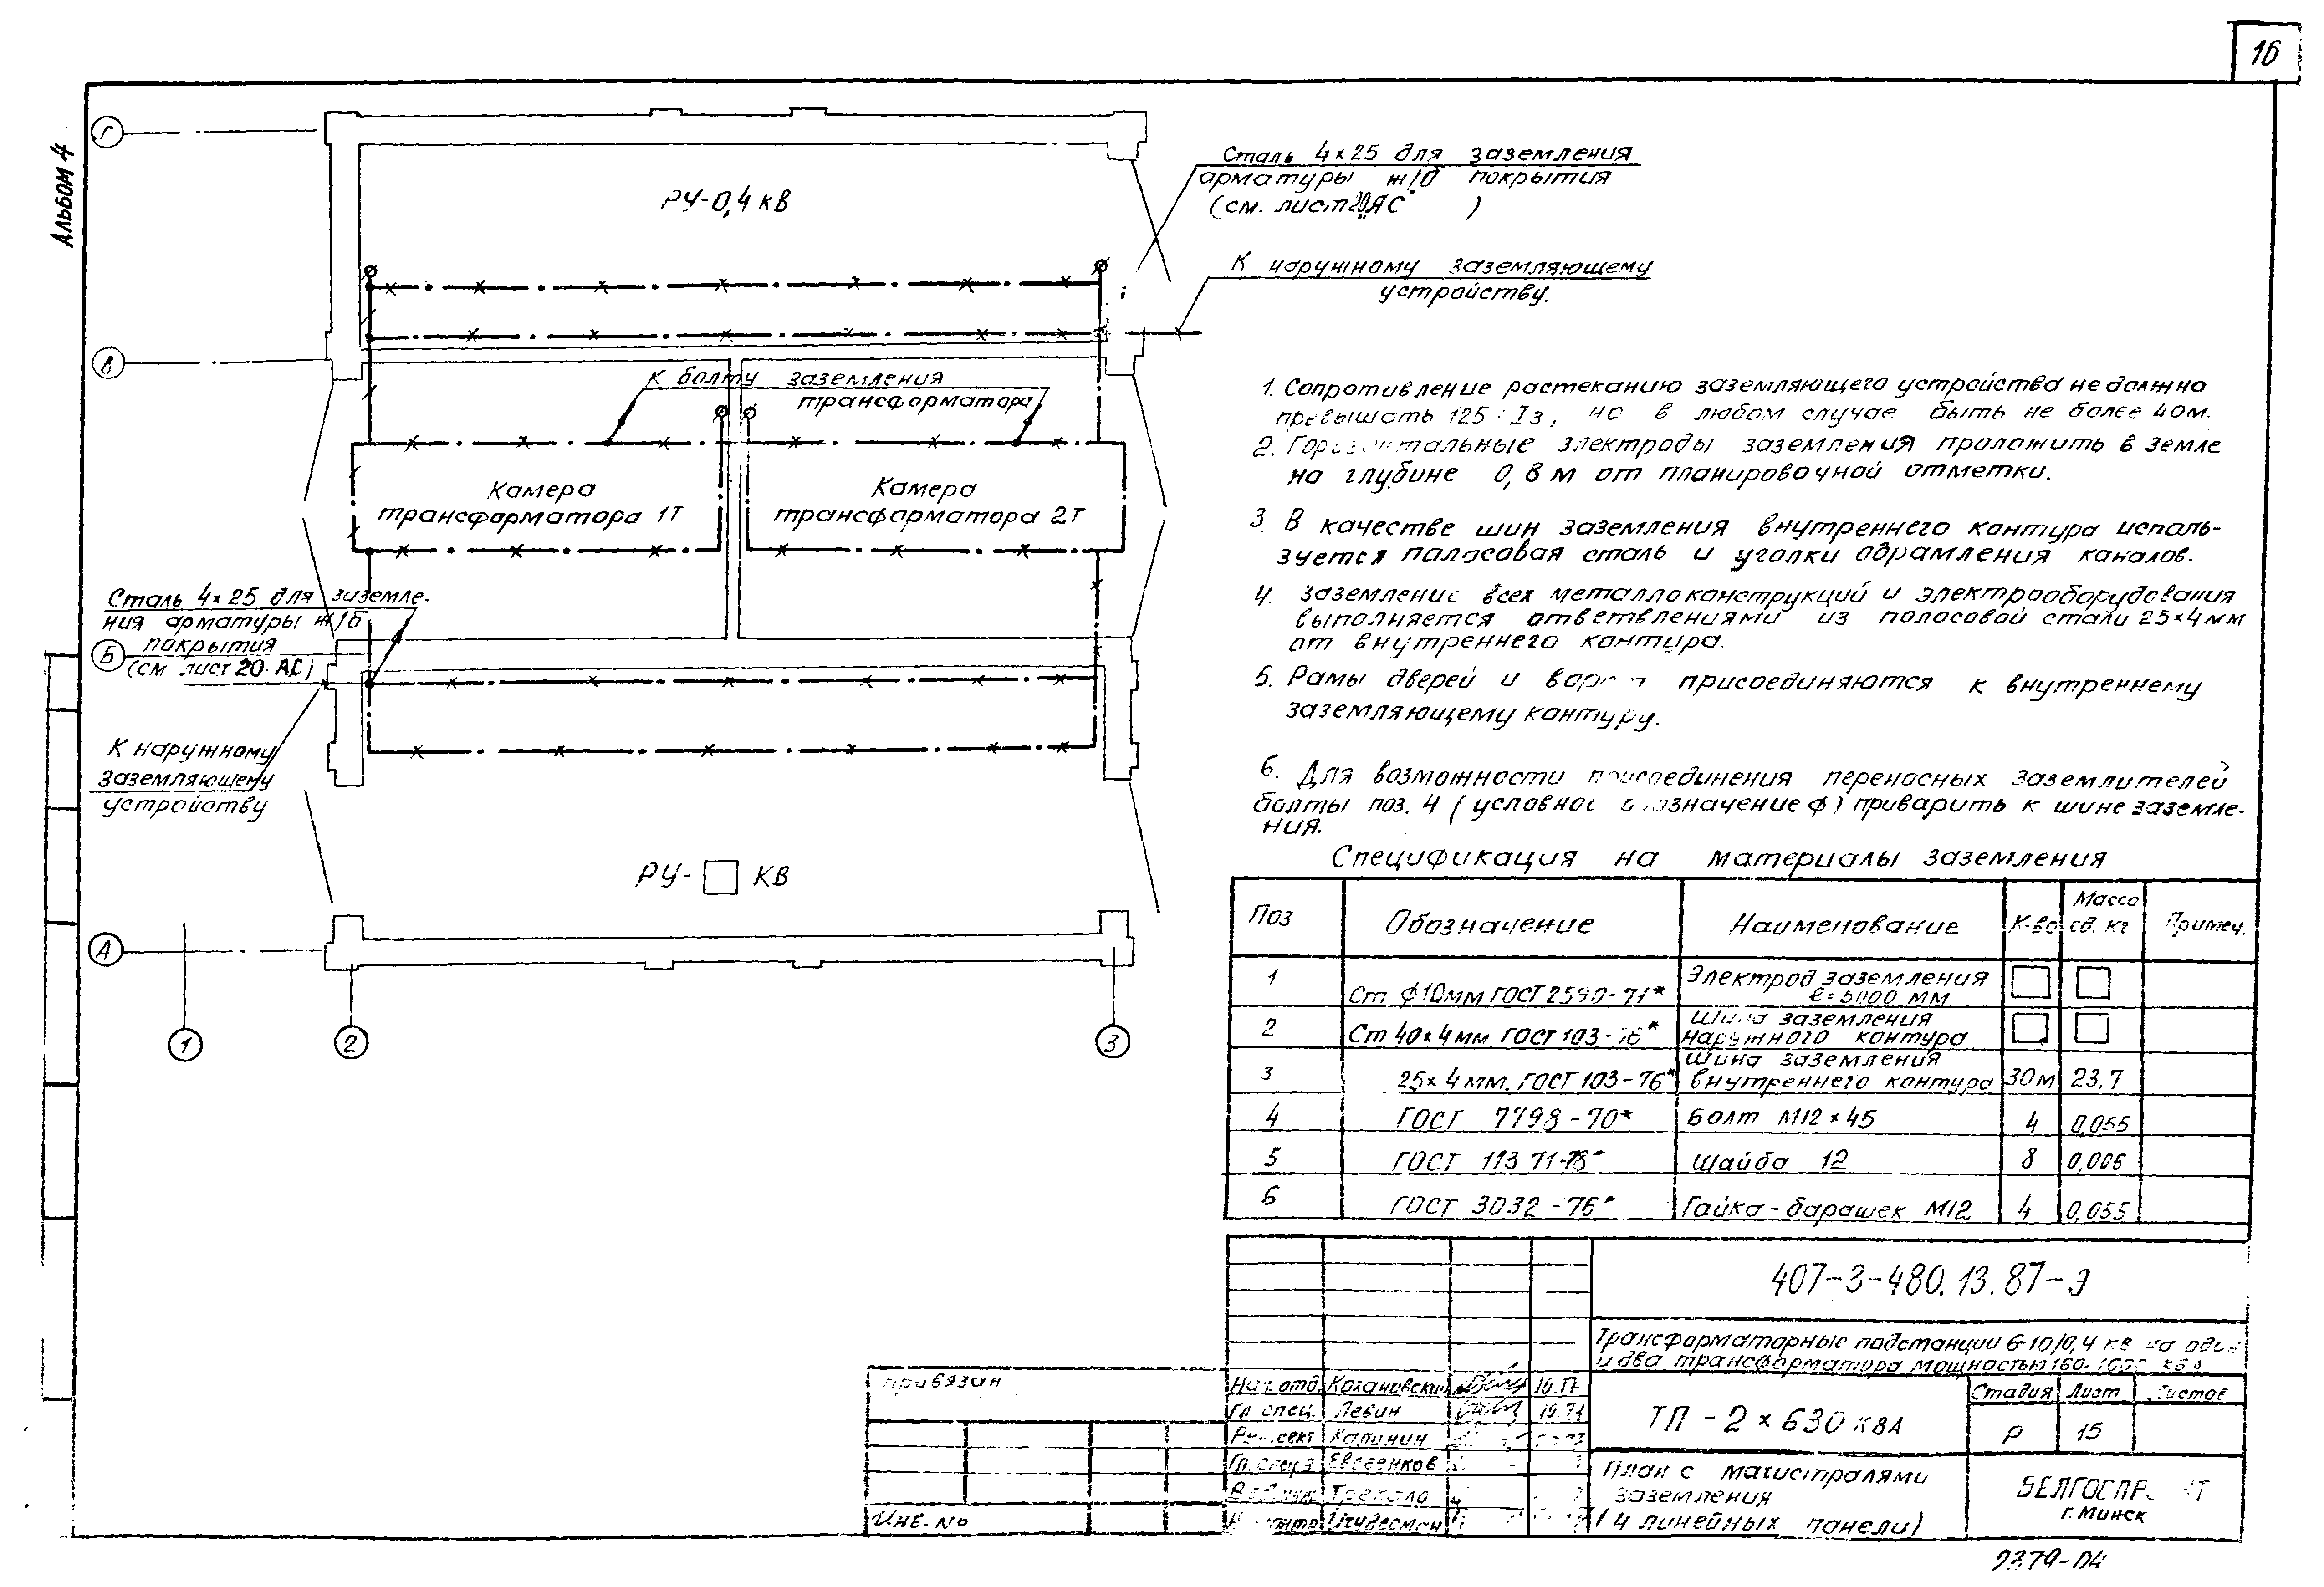 16
Альбом 4
Г
В
Б
А
1
2
3
РУ-0,4 кВ
Сталь 4×25 для заземления
арматуры ж/б покрытия
(см. лист 20 АС )
К наружному заземляющему
устройству.
К болту заземления
трансформатора
Камера
трансформатора 1Т
Камера
трансформатора 2Т
Сталь 4×25 для заземле-
ния арматуры ж/б
покрытия
(см лист 20 АС)
К наружному
заземляющему
устройству
РУ-□ КВ
1. Сопротивление растеканию заземляющего устройства не должно
превышать 125:Iз, но в любом случае быть не более 4ом.
2. Горизонтальные электроды заземления проложить в земле
на глубине 0,8м от планировочной отметки.
3. В качестве шин заземления внутреннего контура исполь-
зуется полосовая сталь и уголки обрамления каналов.
4. Заземление всех металлоконструкций и электрооборудования
выполняется ответвлениями из полосовой стали 25×4мм
от внутреннего контура.
5. Рамы дверей и ворот присоединяются к внутреннему
заземляющему контуру.
6. Для возможности присоединения переносных заземлителей
болты поз. 4 (условное обозначение ϕ) приварить к шине заземле-
ния.
Спецификация на материалы заземления
Поз Обозначение Наименование К-во Масса ед. кг Примеч.
1 Ст ϕ10мм ГОСТ 2590-71* Электрод заземления ℓ=5000 мм □ □
2 Ст 40×4мм ГОСТ 103-76* Шина заземления наружного контура □ □
3 25×4мм. ГОСТ 103-76* Шина заземления внутреннего контура 30м 23,7
4 ГОСТ 7798-70* Болт М12×45 4 0,055
5 ГОСТ 11371-78* Шайба 12 8 0,006
6 ГОСТ 3032-76* Гайка-барашек М12 4 0,055
407-3-480.13.87-Э
Трансформаторные подстанции 6-10/0,4 кв на один
и два трансформатора мощностью 160-
ТП-2×630 кВА
Стадия Лист Листов
Р 15
План с магистралями
заземления
(4 линейных панели)
г. Минск
привязан
Инв. №
Нач. отд. Кохановский
Гл. спец. Левин
Калинин
Гл. спец. Евсеенков
2379-04